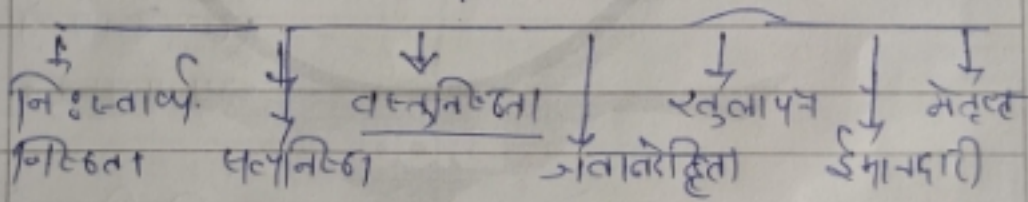 निःस्वार्थ वस्तुनिष्ठता खुलापन नेतृत्व
निष्ठता सत्यनिष्ठा जवाबदेहिता ईमानदारी